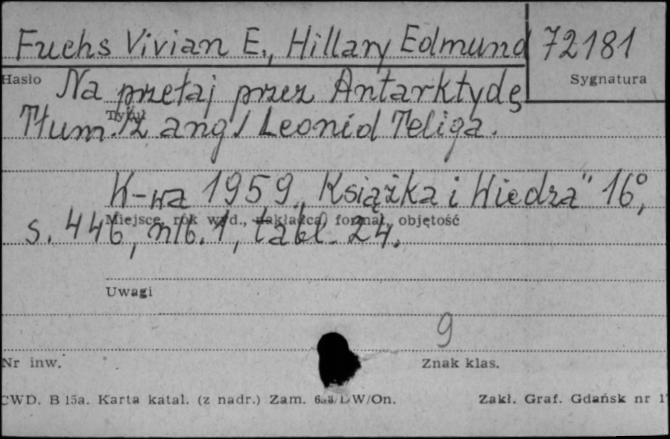 Fuchs Vivian E., Hillary Edmund 72181
Hasło
Sygnatura
Na przełaj przez Antarktydę
Tytuł
Tłum. /z ang/ Leonid Teliga.
W-wa 1959 „Książka i Wiedza" 16°,
Miejsce, rok wyd., nakładca, format, objętość
s. 446, nlb. 1, tabl. 24.
Uwagi
9
Nr inw.
Znak klas.
CWD. B 15a. Karta katal. (z nadr.) Zam. W/On. Zakł. Graf. Gdańsk nr 1